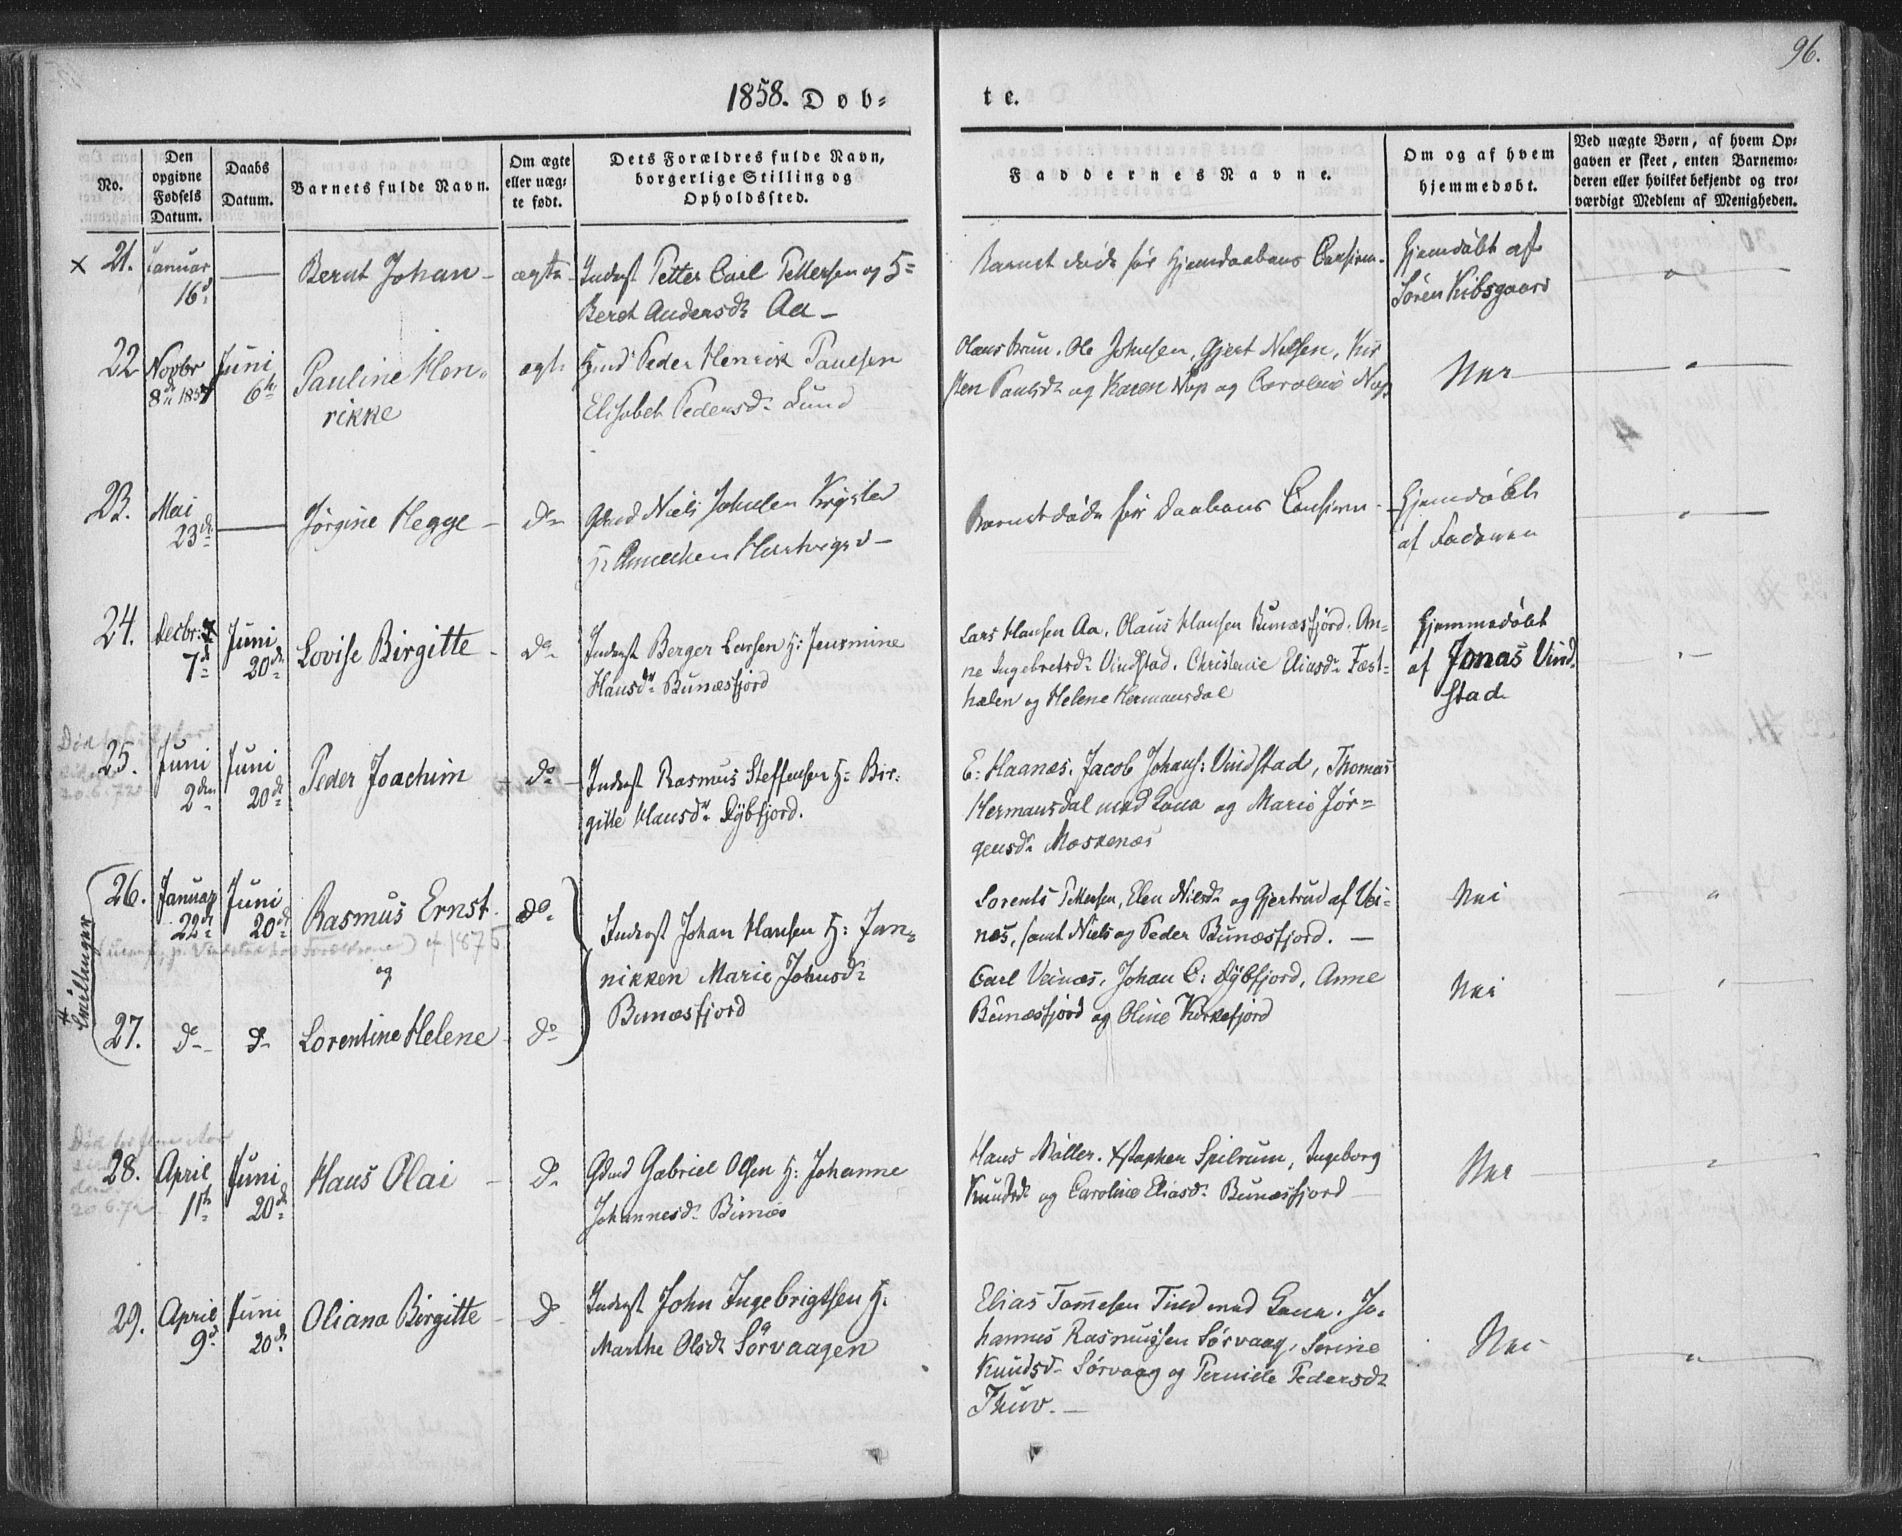 96.
1858. Døb-
te.
No.
Den opgivne Fødsels Datum.
Daabs Datum.
Barnets fulde Navn.
Om ægte eller uæg- te født.
Dets Forældres fulde Navn, borgerlige Stilling og Opholdssted.
Faddernes Navne.
Om og af hvem hjemmedøbt.
Ved uægte Børn, af hvem Op- gaven er skeet, enten Barnemo- deren eller hvilket bekjendt og tro- værdigt Medlem af Menigheden.
x 21. Januar 16d
Bernt Johan - ægte
Inderst Petter Carl Pettersen og H:
Beret Andersdr Aa -
Barnet døde før Hjemdaabens Confirm.
Hjemdøbt af
Søren Kibsgaard
22 Novbr 8de 1857
Juni 6te
Pauline Hen-
rikke
ægte
Peder Henrik Paulsen
Elisabet Pedersdr Lund
Olaus Brun. Ole Johnsen, Gjert Nilsen, Kir
sten Paulsdr og Karen Nup og Caroline Nup
Nei
23. Mai 23d
Jørgine Hegge - do
Gdmd Niels Johnsen
H: Hartvigsd -
Barnet døde før Daabens Confirm -
Hjemdøbt
af Faderen
24. Decbr: 7d
Juni 20de
Lovise Birgitte - do
Inderst Berger Larsen H: Jensmine
Hansdr Bunæsfjord
Lars Hansen Aa, Olaus Hansen Bunæsfjord. An-
ne Ingebretsdr Vindstad. Christense Eliasdr Fæst-
hælen og Helene Hermansdal
Hjemmedøbt
af Jonas Vind
stad
Død
20.6.72
25. Juni 2den
Juni 20de
Peder Joachim do
Inderst Rasmus Steffensen H: Bir-
gitte Hansdr Dybfjord.
E: Haanæs. Jacob Johans: Vindstad, Thomas
Hermansdal med Kona og Marie Jør-
gensdr Moskenæs
Tvillinger
26. Januar 22de
Juni 20de
Rasmus Ernst do
1875
og
27. do do Lorentine Helene do
Inderst Johan Hansen H: Jan-
nikken Marie Johnsdr
Bunæsfjord
Lorents Pettersen, Elen Nilsdr og Gjertrud af Vei-
næs, samt Niels og Peder Bunæsfjord. -
Nei
Carl Veinæs, Johan C: Dybfjord, Anne
Bunæsfjord og Oline Kirkefjord
Nei
Død
20.6.72
28. April 11te
Juni 20de
Hans Olai - do
Gdmd Gabriel Olsen H: Johanne
Johannesdr Bunæs
Hans Møller. Spilrum, Ingeborg
Knudsdr og Caroline Eliasdr Bunæsfjord
Nei
29. April 9de
Juni 20de
Oliana Birgitte - do
Inderst John Ingebrigtsen H:
Marthe Olsdr Sørvaagen
Elias Tommesen Tind med Kona. Jo-
hannes Rasmussen Sørvaag, Serine
Knudsdr Sørvaag og Pernille Pedersdr
Thuv. -
Nei